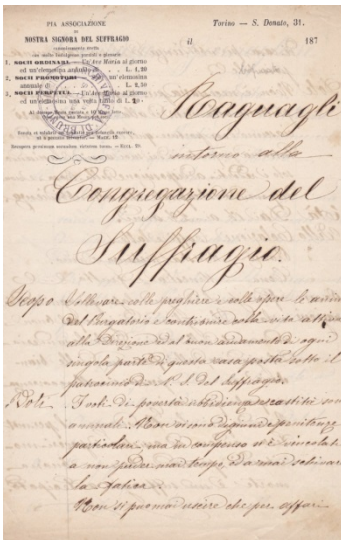 PIA ASSOCIAZIONE
DI
NOSTRA SIGNORA DEL SUFFRAGIO
1. SOCII ORDINARI. - Un' Ave Maria al giorno
ed un' elemosina annua di L. 1,20
2. SOCII PROMOTORI - un' elemosina
annuale di L. 2,50
3. SOCII PERPETUI - Un' Ave Maria al giorno
ed un' elemosina una volta tanto di L. 20
Torino — S. Donato, 31.
il 187
Raguagli
intorno alla
Congregazione del
Suffragio.
Scopo Sollevare colle preghiere e colle opere le anime
del Purgatorio e contribuire colla vita attiva
alla Direzione ed al buon andamento di ogni
singola parte di questa casa posta sotto il
patrocinio di N. S. del Suffragio.
Voti I voti di povertà obbedienza e castità sono
annuali. Non vi sono digiuni e penitenze
particolari, ma in compenso si è vincolate
a non perder mai tempo, od a mai schivare
la fatica.
Non si può mai uscire che per affari